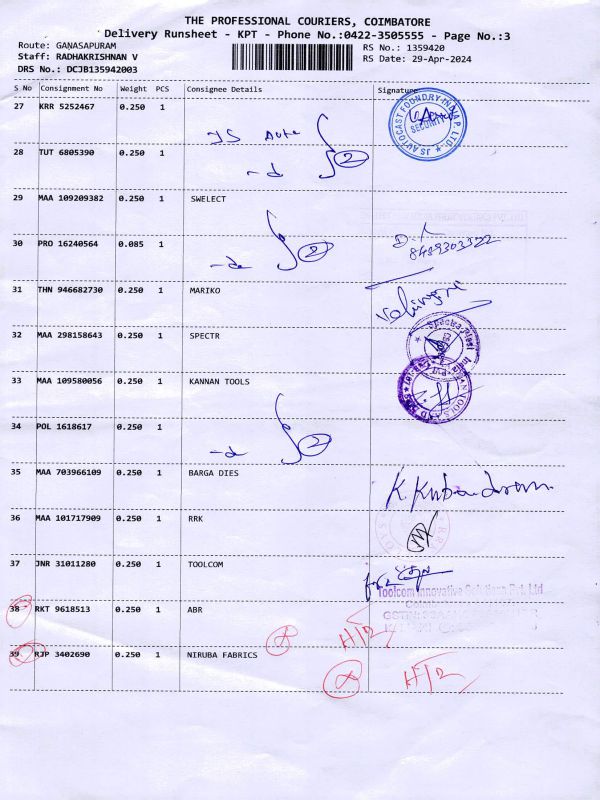 THE PROFESSIONAL COURIERS, COIMBATORE
Delivery Runsheet - KPT - Phone No.:0422-3505555 - Page No.:3
Route: GANASAPURAM
RS No.: 1359420
Staff: RADHAKRISHNAN V
RS Date: 29-Apr-2024
DRS No.: DCJB135942003
S No Consignment No Weight PCS Consignee Details Signature
27 KRR 5252467 0.250 1
JS Auto
JS AUTOCAST FOUNDRY INDIA P. LTD.
SECURITY
28 TUT 6805390 0.250 1
-d 2
29 MAA 109209382 0.250 1 SWELECT
30 PRO 16240564 0.085 1
-d 2
8489303322
31 THN 946682730 0.250 1 MARIKO
32 MAA 298158643 0.250 1 SPECTR
33 MAA 109580056 0.250 1 KANNAN TOOLS
34 POL 1618617 0.250 1
-d 2
35 MAA 703966109 0.250 1 BARGA DIES
36 MAA 101717909 0.250 1 RRK
37 JNR 31011280 0.250 1 TOOLCOM
Toolcom Innovative Solutions Pvt. Ltd
38 RKT 9618513 0.250 1 ABR
39 RJP 3402690 0.250 1 NIRUBA FABRICS